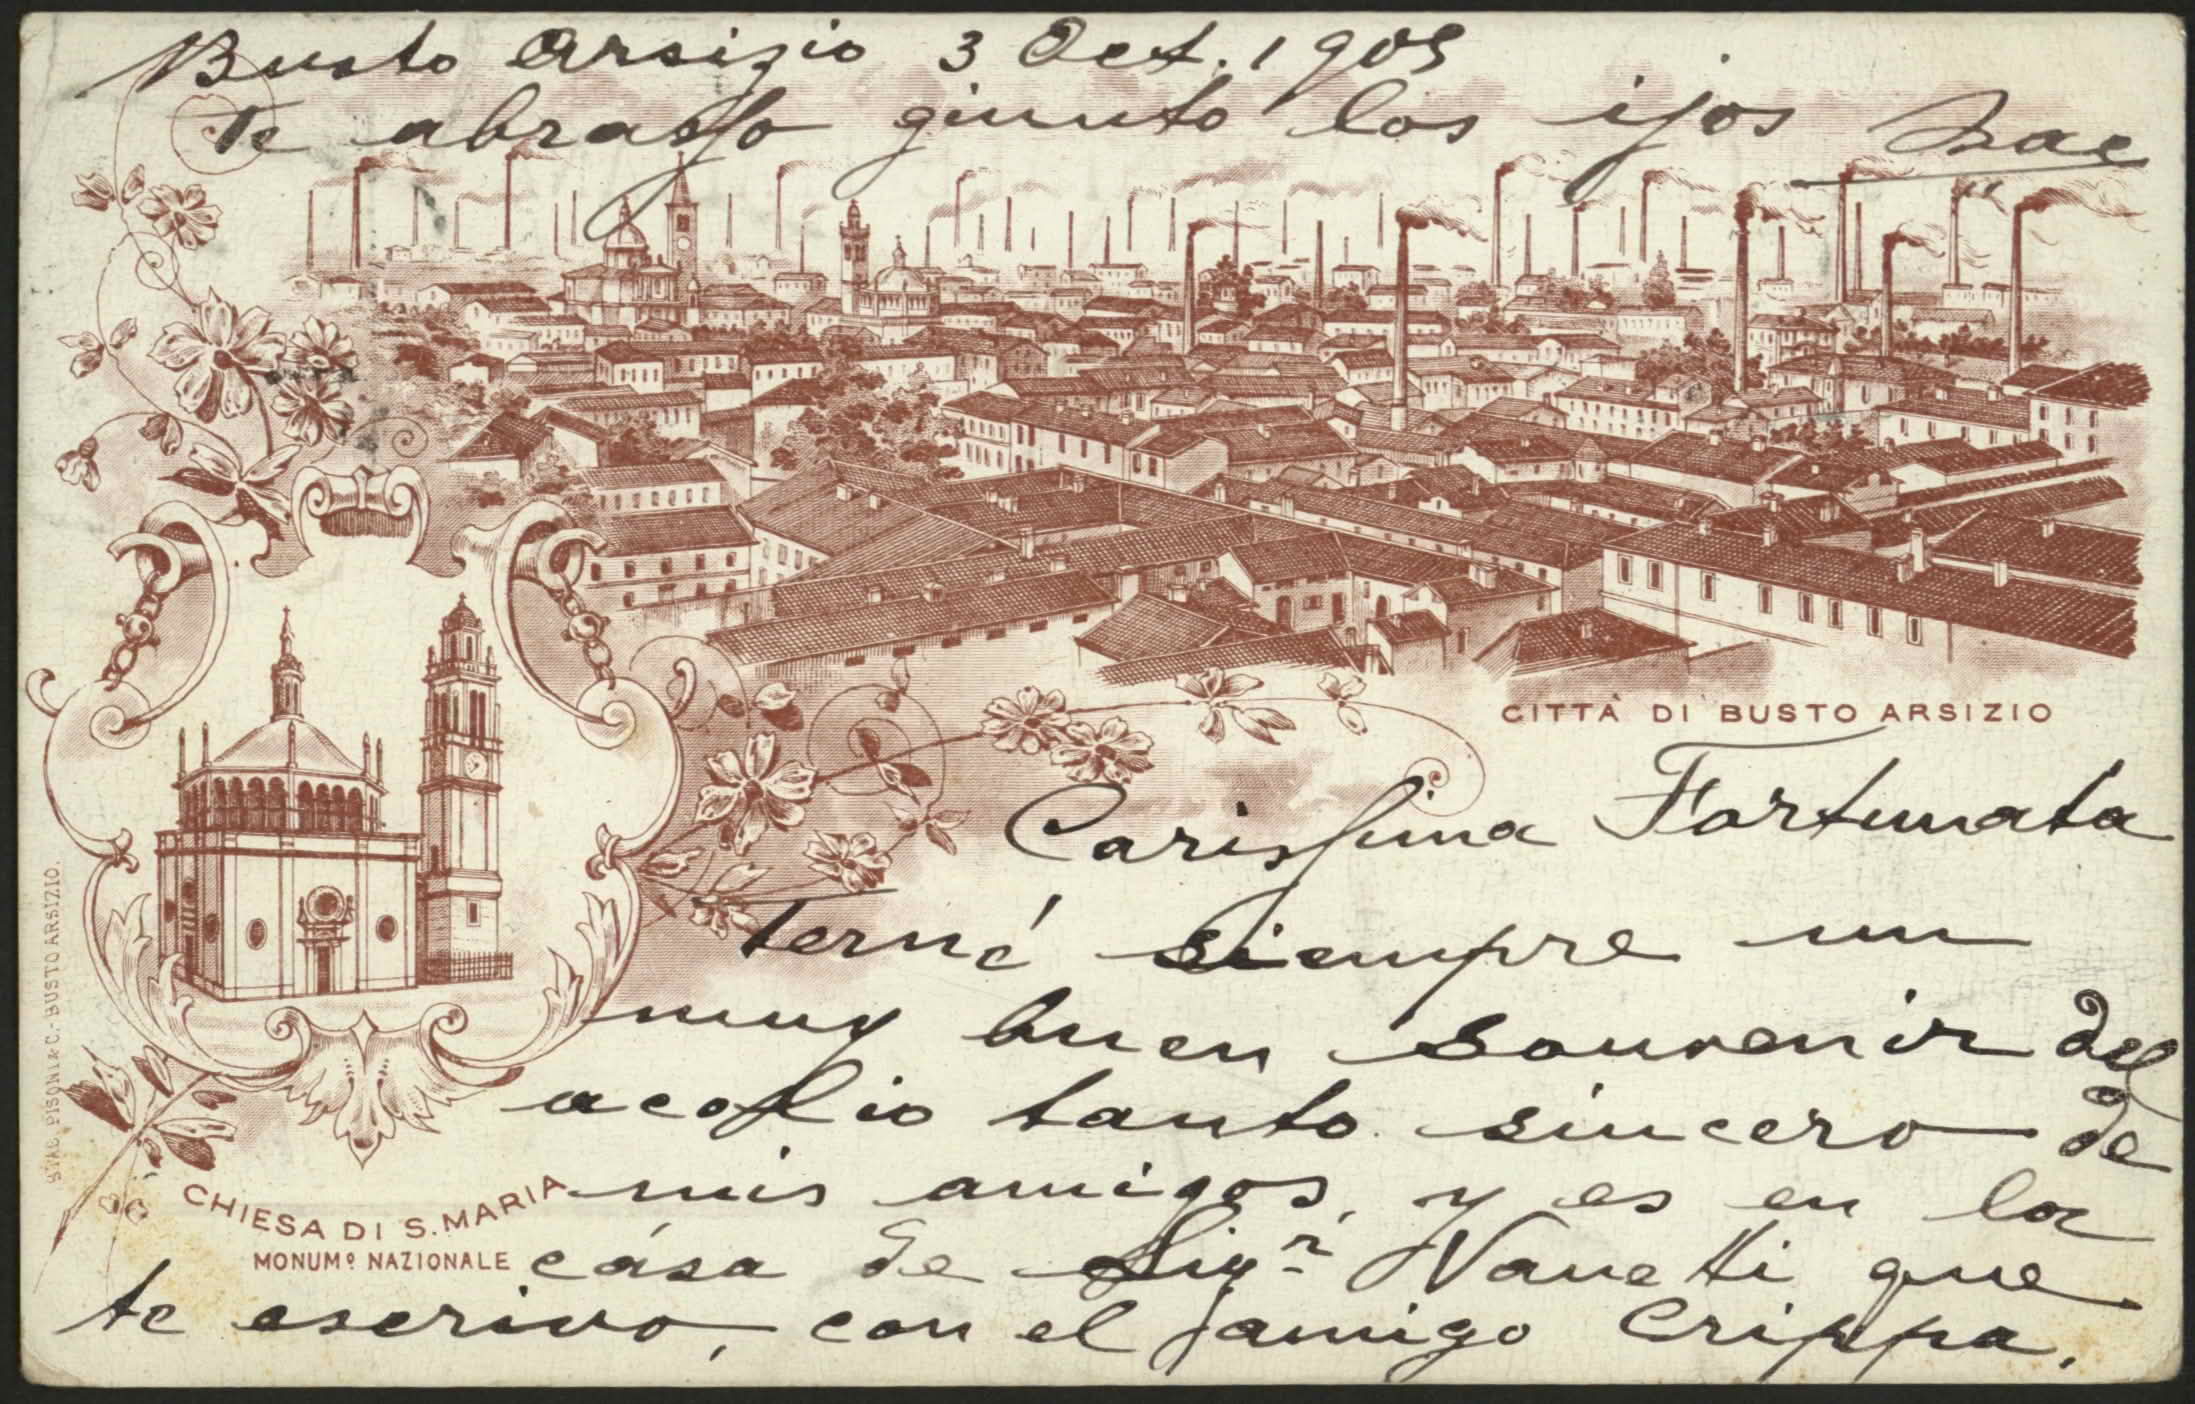 Busto Arsizio 3 Oct. 1905
te abrasso giunto los ijos
CITTÀ DI BUSTO ARSIZIO
Carissima Fortunata
terné siempre un
muy buen souvenir del
acoglio tanto sincero de
mis amigos, y es en la
cása de Sigr Vanetti que
te escrivo, con el amigo Crippa,
CHIESA DI S. MARIA
MONUMº NAZIONALE
STAB. PISONI & C. - BUSTO ARSIZIO.